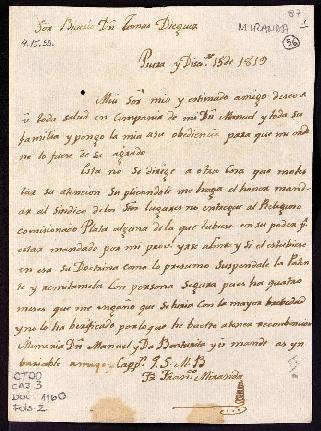 87
MIRANDA 1
56
Sor Ynterio Dn Tomas Dieguez
4.15.55.
Piura y Dizre 15 de 1819
Mui Sor mio y estimado amigo deseo a
V toda salud en Compañia de mi Dn Manuel y toda su
familia y pongo la mia a su obediencia para que me mande
no lo fuere de su agrado
Esta no se dirige a otra Cosa que moles
tar su atencion Suplicandole me haga el honor mandar
al Sindico de los Stos lugares no entregue al Religioso
Comisionado Plata alguna de la que tubiere en su poder
estar mandado por mi y si el estubiese
en esa su Doctrina Como lo presumo Suspendale la Paten
te y remitamela Con persona Segura pues ha quatro
meses que me engaña que Se biene Con la mayor brebedad
y no lo ha berificado por lo que he buelto
Dn Manuel y Da y mande a su yn
bariable amigo y Cappn Q. S. M. B
Fr Franco Miranda
OTDO
CAJ. 3
DOC 1160
Fols. 2